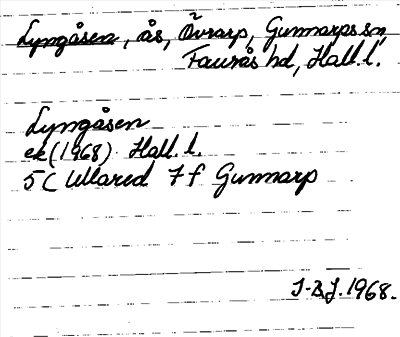 Lyngåsen, ås, Övrarp, Gunnarps sn,
Faurås hd, Hall. l.
Lyngåsen
ek (1968) Hall. l.
5C Ullared 7 f Gunnarp
J-BJ. 1968.